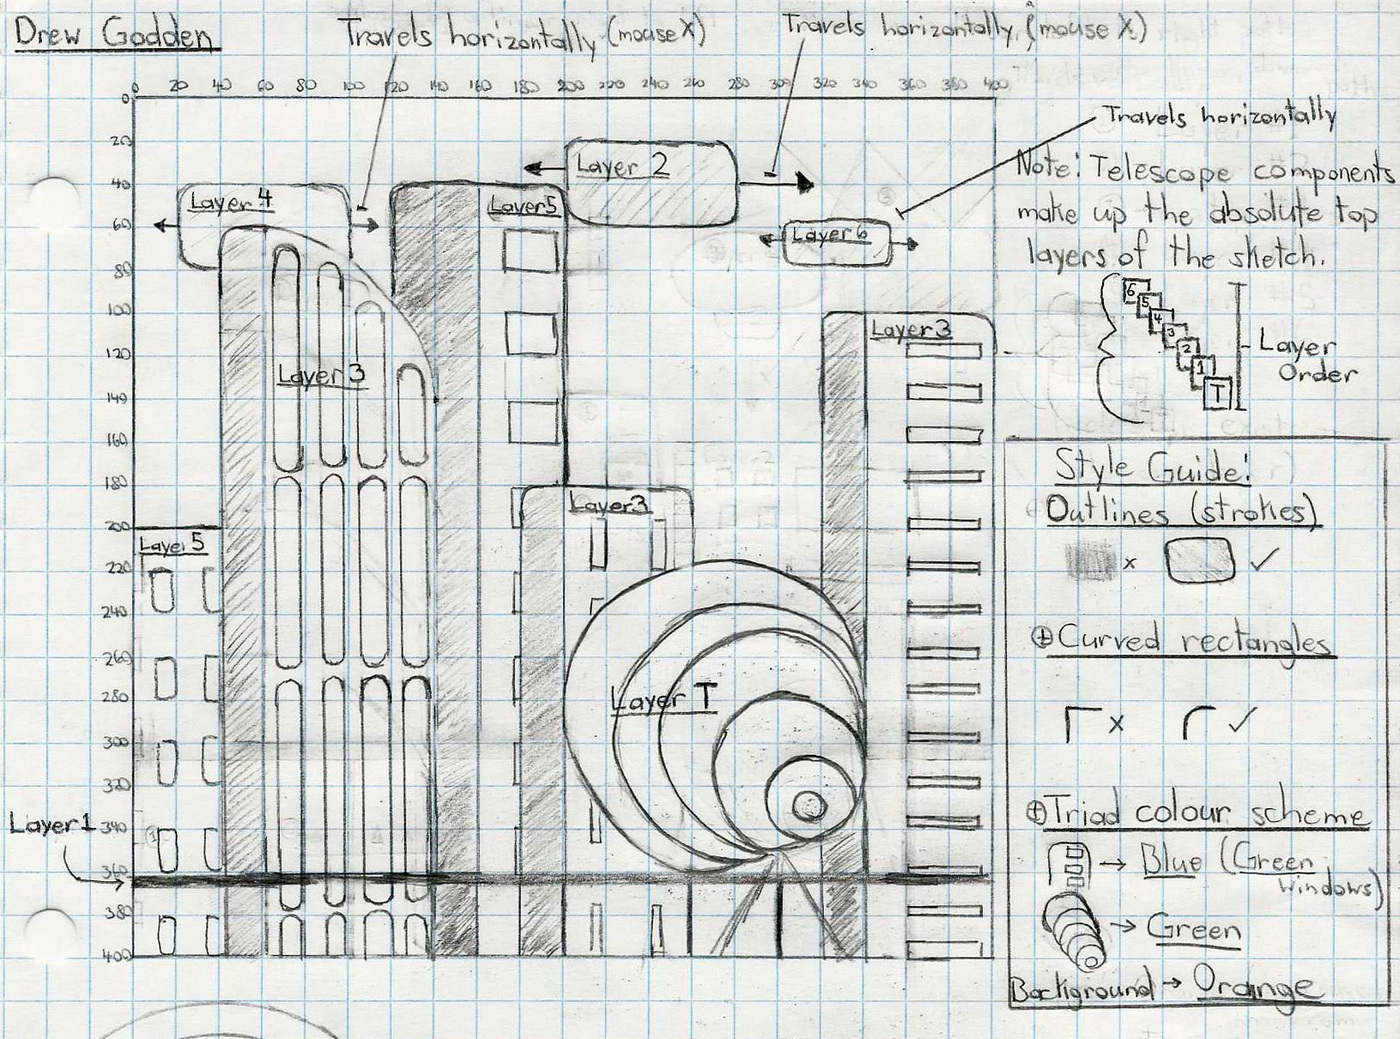 Drew Godden
Travels horizontally (mouse X)
Travels horizontally (mouse X)
Travels horizontally
0 20 40 60 80 100 120 140 160 180 200 220 240 260 280 300 320 340 360 380 400
0
20
40
60
80
100
120
140
160
180
200
220
240
260
280
300
320
340
360
380
400
Layer 2
Layer 4
Layer 5
Layer 6
Layer 3
Layer 3
Layer 3
Layer 5
Layer T
Layer 1
Note: Telescope components
make up the absolute top
layers of the sketch.
6
5
4
3
2
1
T
Layer
Order
Style Guide:
Outlines (strokes)
x ✓
Curved rectangles
x ✓
Triad colour scheme
→ Blue (Green
windows)
→ Green
Background → Orange